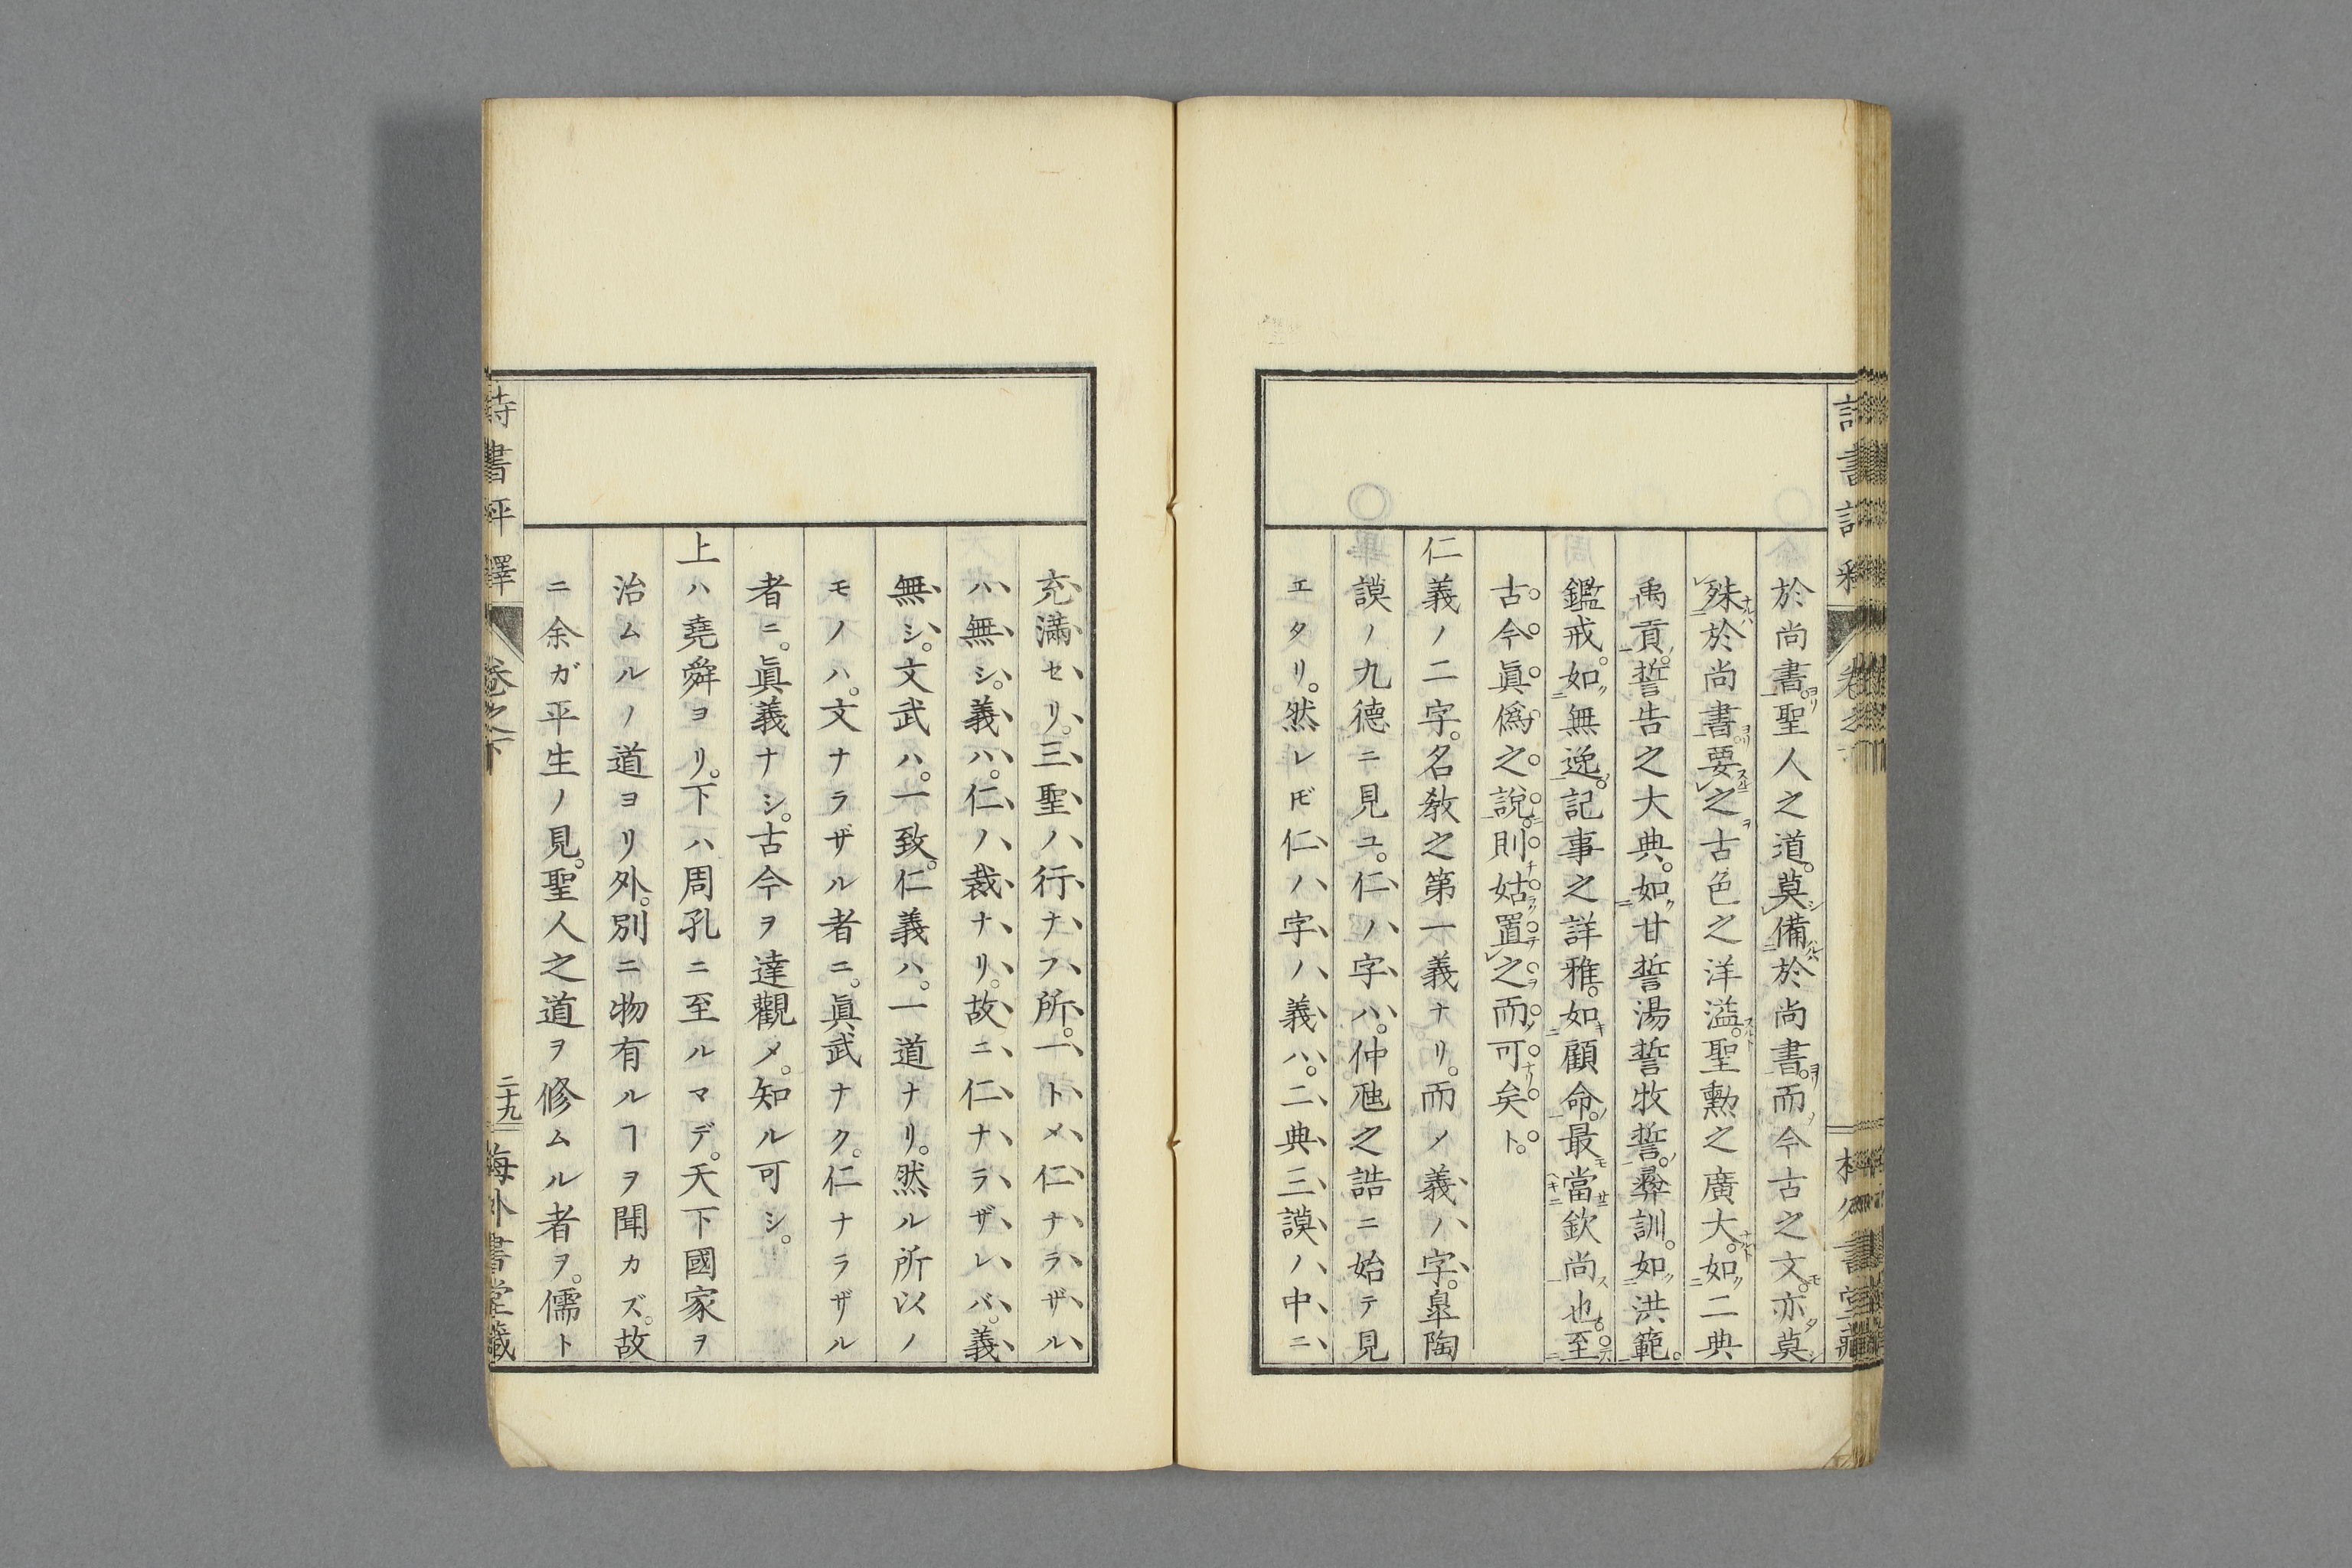 於尚書。聖人之道。莫備於尚書。而今古之文。亦莫
殊於尚書。要之古色之洋溢。聖勲之廣大。如二典
禹貢。誓告之大典。如甘誓湯誓牧誓。彝訓。如洪範。
鑑戒。如無逸。記事之詳雅。如顧命。最當欽尚也。至
古今眞僞之說。則姑置之而可矣ト。
仁義ノ二字。名教之第一義ナリ。而メ義ノ字。皐陶
謨ノ九德ニ見ユ。仁ノ字ハ。仲虺之誥ニ始テ見
エタリ。然レ𪜈仁ノ字ノ義ハ。二典三謨ノ中ニ
充滿セリ。三聖ノ行ナフ所。一トメ仁ナラザル
ハ無シ。義ハ。仁ノ裁ナリ。故ニ仁ナラザレバ。義
無シ。文武ハ。一致。仁義ハ。一道ナリ。然ル所以ノ
モノハ。文ナラザル者ニ。眞武ナク。仁ナラザル
者ニ。眞義ナシ。古今ヲ達觀メ。知ル可シ。
上ハ堯舜ヨリ。下ハ周孔ニ至ルマデ。天下國家ヲ
治ムルノ道ヨリ外。別ニ物有ルヿヲ聞カズ。故
ニ余ガ平生ノ見。聖人之道ヲ修ムル者ヲ。儒ト
詩書評釋 卷之下 二十九 海外書堂藏